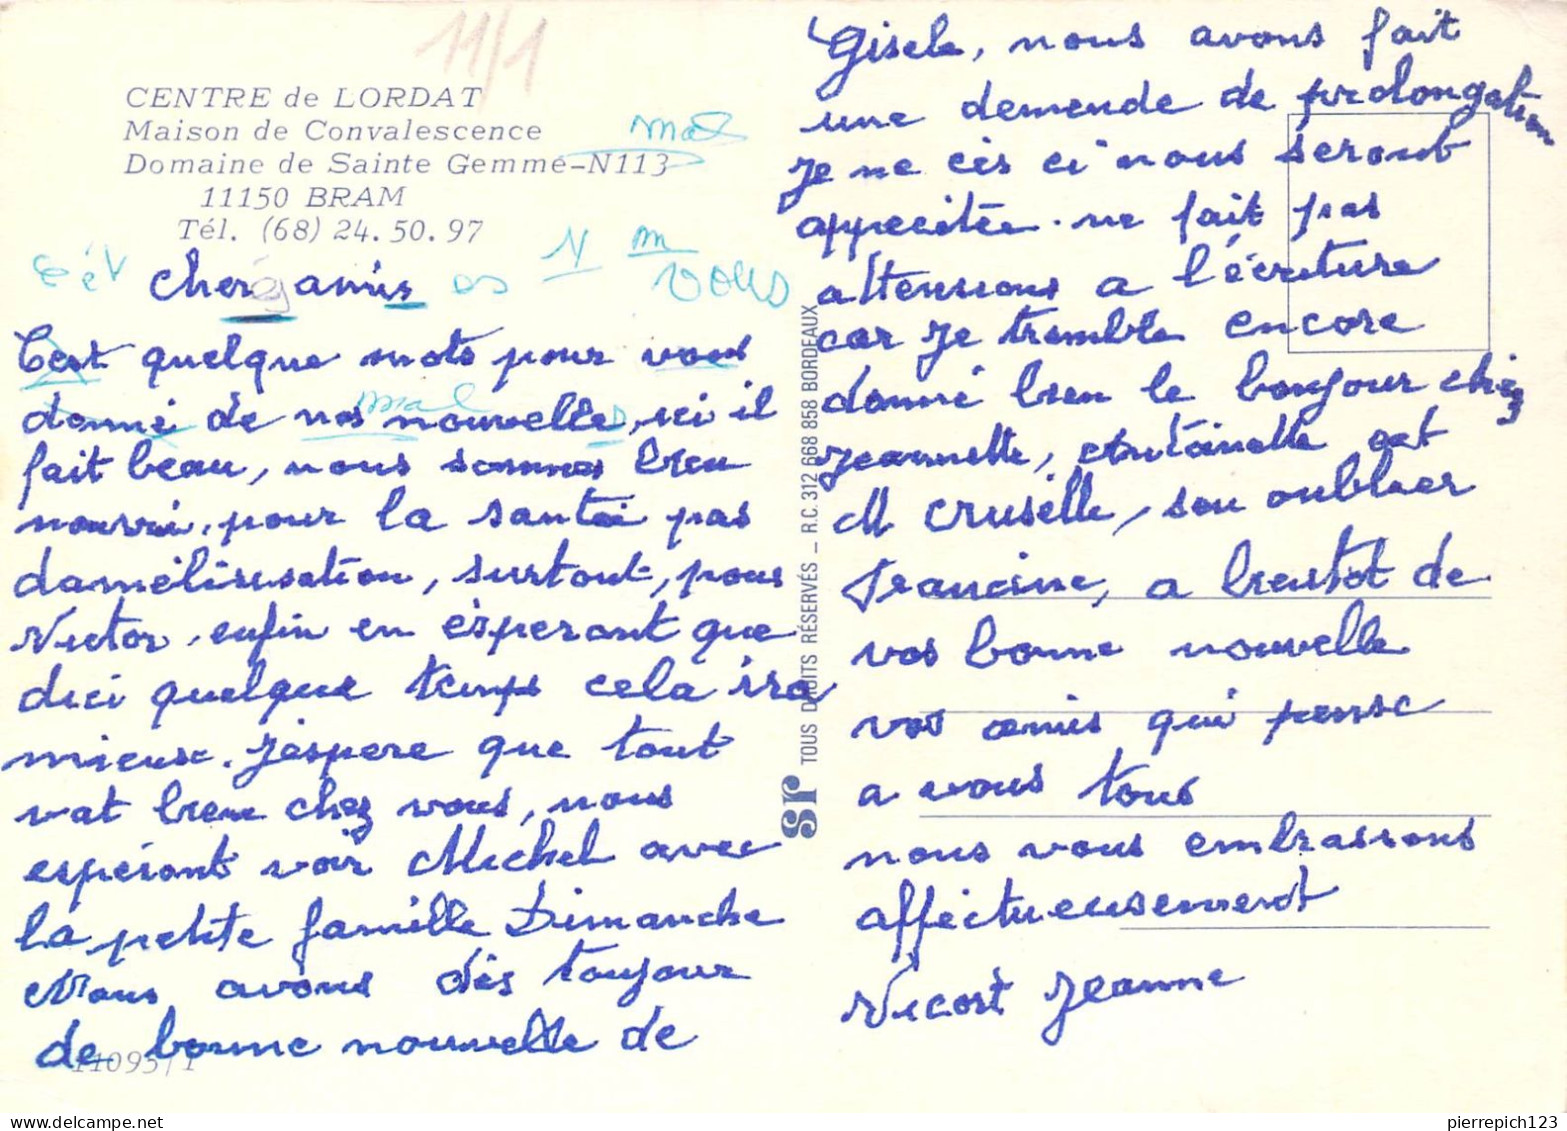 11/1
CENTRE de LORDAT
Maison de Convalescence
Domaine de Sainte Gemme-N113
11150 BRAM
Tél. (68) 24.50.97
mal
chers amis
es N m
vous
C'est quelque mots pour vous
mal
donné de nos nouvelles, ici il
fait beau, nous sommes bien
nourri, pour la santé pas
damélirisation, surtout, pour
Victor, enfin en ésperant que
dici quelque temps cela ira
mieux. J'éspere que tout
vat bien chez vous, nous
espéront voir Michel avec
la petite famille Dimanche
Nous avons dès toujour
de bonne nouvelle de
11095/1
Gisele, nous avons fait
une demende de prolongation
je ne cès ci nous seront
appecitée. ne fait pas
attensions a l'écriture
car je tremble encore
donné bien le bonjour chéz
Jeannette, Antoinette et
M Cruselle, sou oublier
Francine, a bientot de
vos bonne nouvelle
vos amis qui pense
a vous tous
nous vous embrassons
affectueusement
Vicort Jeanne
sr TOUS DROITS RÉSERVÉS _ R.C. 312 668 858 BORDEAUX
pierrepich123